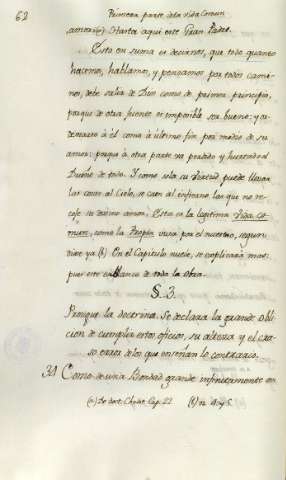 62
Primera parte. dela Vida Comun
amor. (a) Hasta aqui este Gran Padre.
Esto en suma es decirnos, que todo quanto
hacemos, hablamos, y pensamos por todos cami-
nos, debe salir de Dios como de primer principio,
porque de otra fuente es imposible sea bueno: y or-
denarse à él como à ultimo fin por medio de su
amor: porque à otra parte va y hurtandolo al
Dueño de todo. Y como sola su Virtud puede llevar
las cosas al Cielo, se caen al infierno las que no
su divino amor. Esta es la legitima Vida Co-
mun, como la Propia vive por el nuestro, segun
vive ya (b) En el Capitulo nueve, se explicará mas:
pues este es blanco de toda la Obra.
§. 3.
Prosigue la doctrina. Se declara la grande obli-
cion de cumplir estos oficios, su alteza y el exce-
so error delos que enseñan lo contrario.
31 Como de una Bondad grande infinitamente en
(a) De doct. Christ. Cap. 22 (b) n.